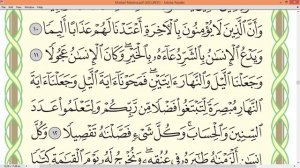 Mushaf-Muhammadi (SECURED) - Adobe Reader
وَأَنَّ ٱلذِينَ لَا يُومِنُونَ بِالَاخِرَةِ أَعْتَدْنَا لَهُمْ عَذَاباً اَلِيماً ١٠
وَيَدْعُ الْإِنسَٰنُ بِالشَّرِّ دُعَآءَهُۥ بِالْخَيْرِ وَكَانَ الْإِنسَٰنُ عَجُولًا ١١
وَجَعَلْنَا اَلَّيْلَ وَالنَّهَارَ ءَايَتَيْنِ فَمَحَوْنَآ ءَايَةَ اَلَّيْلِ وَجَعَلْنَآ ءَايَةَ
اَلنَّهَارِ مُبْصِرَةً لِّتَبْتَغُواْ فَضْلًا مِّن رَّبِّكُمْ وَلِتَعْلَمُواْ عَدَدَ
اَلسِّنِينَ وَالْحِسَابَ وَكُلَّ شَےْءٍ فَصَّلْنَٰهُ تَفْصِيلًا ١٢ وَكُلَّ
إِنسَٰنٍ اَلْزَمْنَٰهُ طَٰٓئِرَهُۥ فِے عُنُقِهِۦ وَنُخْرِجُ لَهُۥ يَوْمَ اَلْقِيَٰمَةِ كِتَٰباً